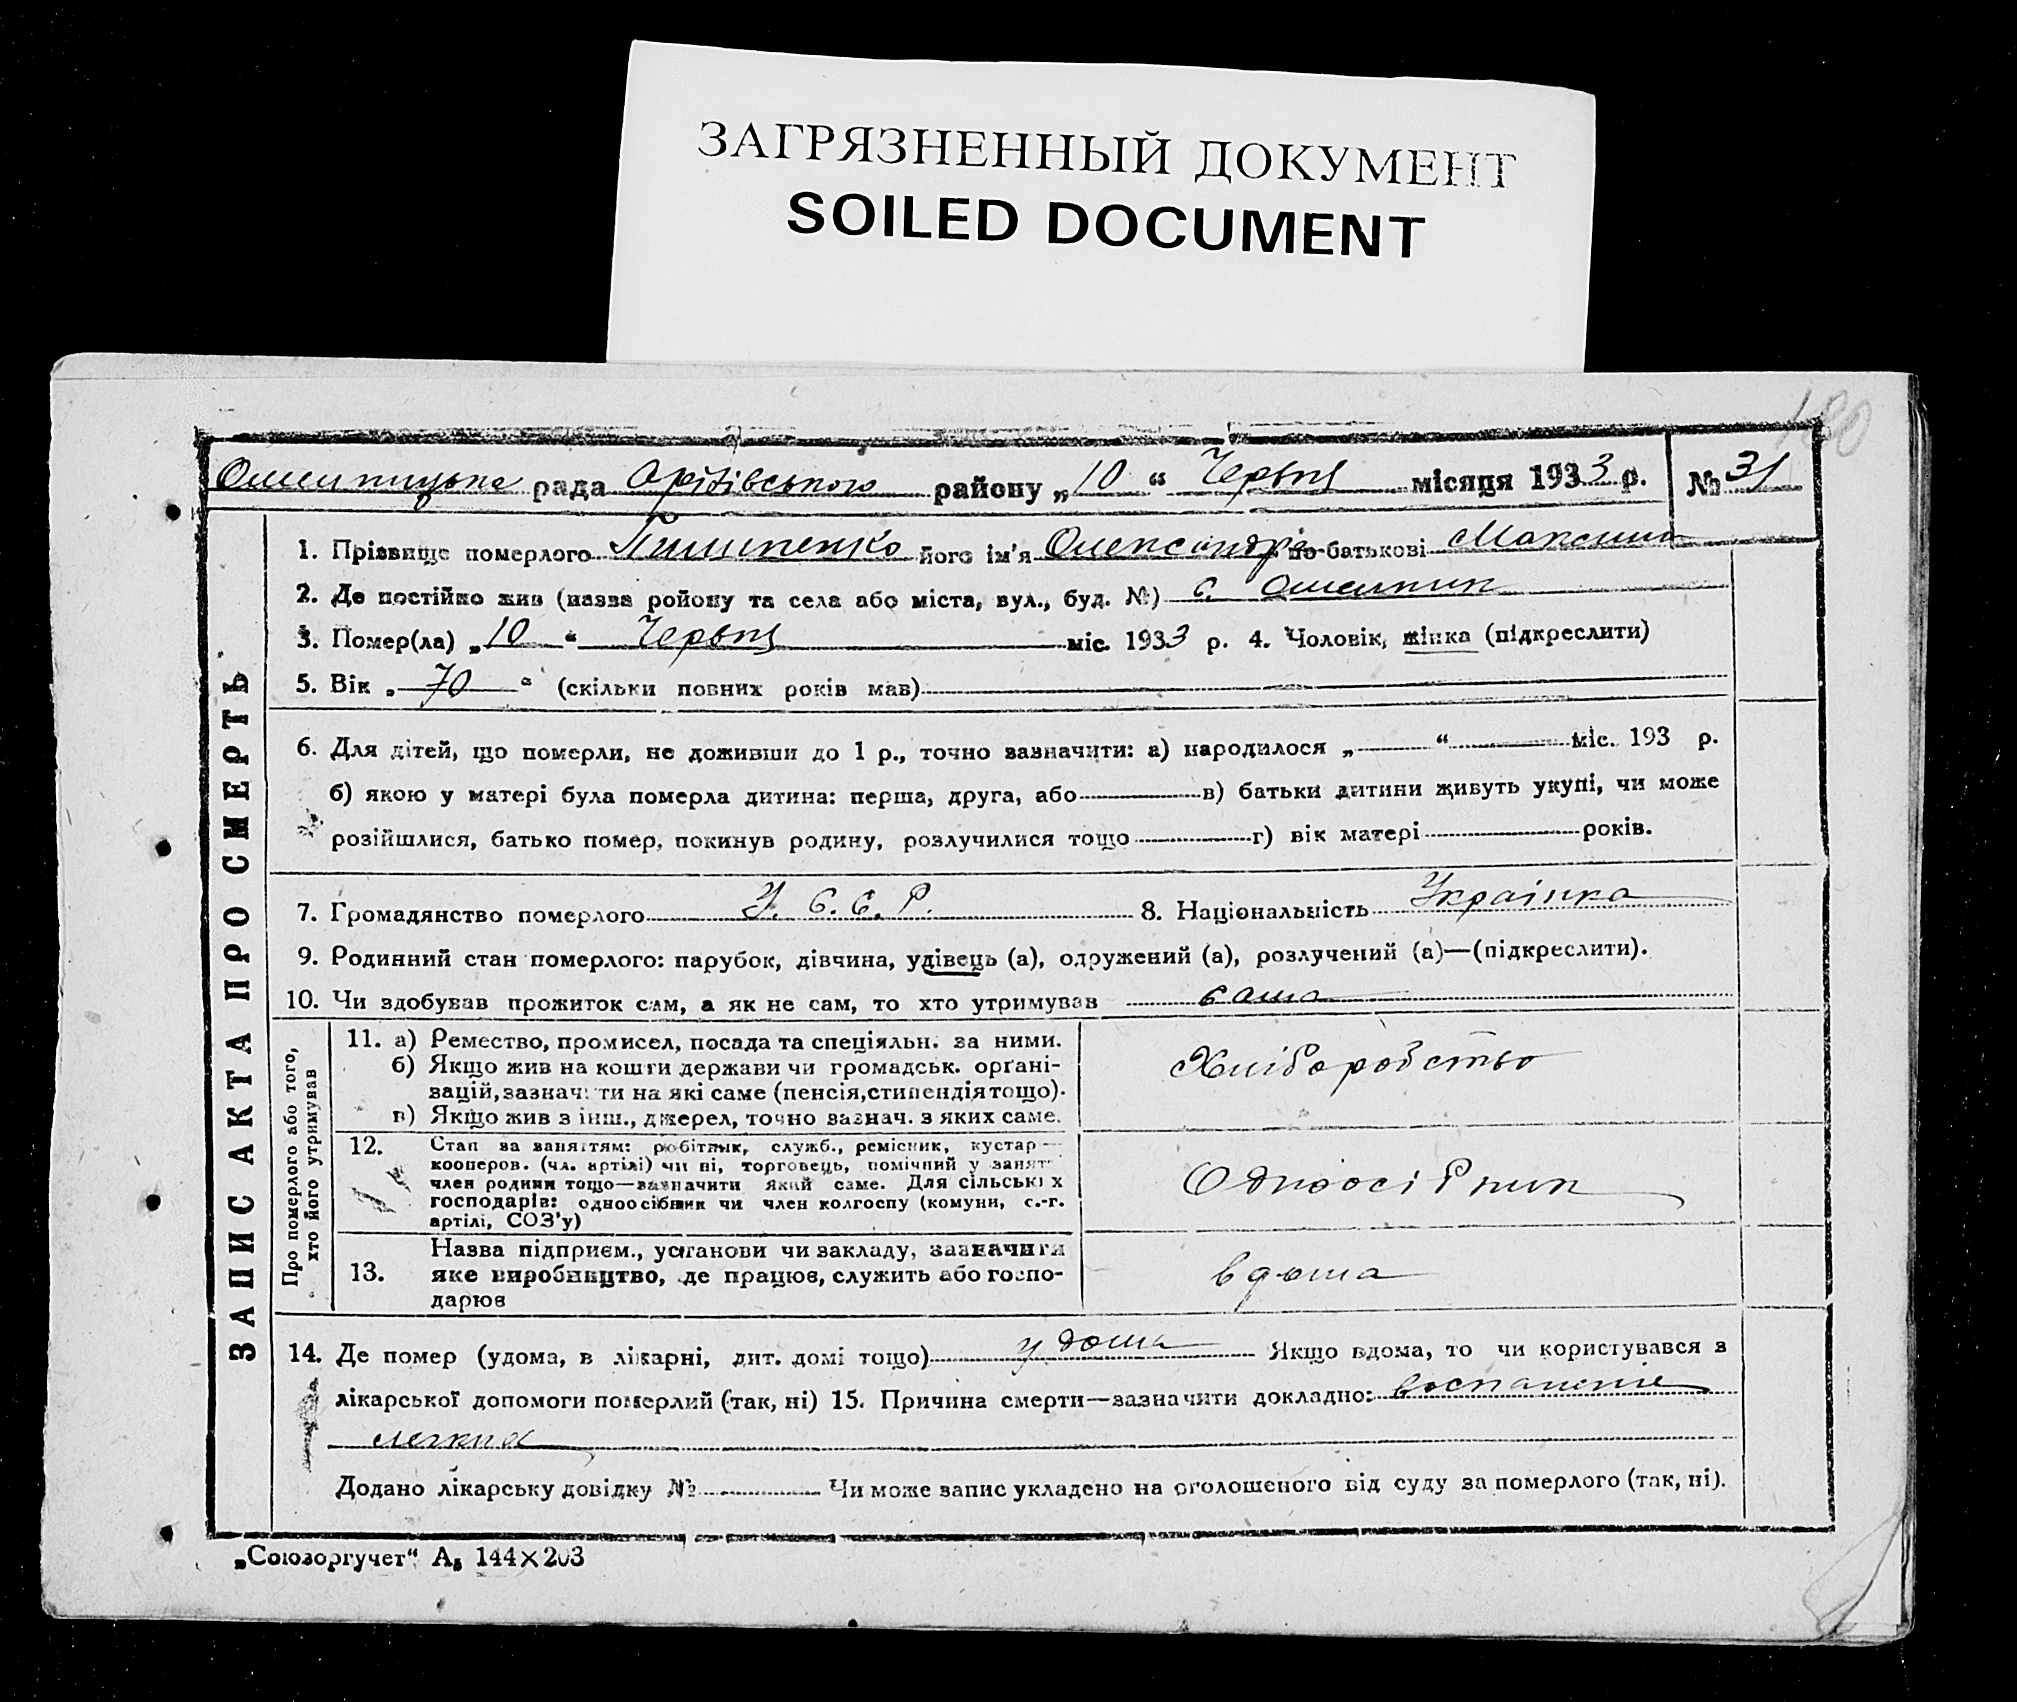 ЗАГРЯЗНЕННЫЙ ДОКУМЕНТ
SOILED DOCUMENT
180
рада района „ 10 “ Червня місяця 1933 р. № 31
ЗАПИС АКТА ПРО СМЕРТЬ
1. Прізвище померлого його ім'я Олександра по-батькові Максими
2. Де постійно жив (назва ройону та села або міста, вул., буд. №) с.
3. Помер(ла) „ 10 “ Червня міс. 1933 р. 4. Чоловік, жінка (підкреслити)
5. Вік „ 70 “ (скільки повних років мав)
6. Для дітей, що померли, не доживши до 1 р., точно зазначити: а) народилося „ “ міс. 193 р.
б) якою у матері була померла дитина: перша, друга, або в) батьки дитини живуть укупі, чи може
розійшлися, батько помер, покинув родину, розлучилися тощо г) вік матері років.
7. Громадянство померлого У. С. С. Р. 8. Національність Українка
9. Родинний стан померлого: парубок, дівчина, удівець (а), одружений (а), розлучений (а)—(підкреслити).
10. Чи здобував прожиток сам, а як не сам, то хто утримував сама
Про померлого або того,
хто його утримував
11. а) Ремество, промисел, посада та спеціяльн. за ними.
б) Якщо жив на кошти держави чи громадськ. орґані-
зацій, зазначити на які саме (пенсія, стипендія тощо).
в) Якщо жив з інш., джерел, точно зазнач. з яких саме.
Хліборобство
12. Стан за заняттям: робітник, служб., ремісник, кустар —
кооперов. (чл. артілі) чи ні, торговець, помічний у занятт
член родини тощо—зазначити який саме. Для сільських
господарів: одноосібник чи член колгоспу (комуни, с.-г.
артілі, СОЗ'у)
Одноосібник
13. Назва підприєм., установи чи закладу, зазначити
яке виробництво, де працює, служить або госпо-
дарює
вдома
14. Де помер (удома, в лікарні, дит. домі тощо) у дома Якщо вдома, то чи користувався з
лікарської допомоги померлий (так, ні) 15. Причина смерти—зазначити докладно: воспаленіе
легких
Додано лікарську довідку № Чи може запис укладено на оголошеного від суду за померлого (так, ні).
„Союзоргучет“ А₅ 144×203